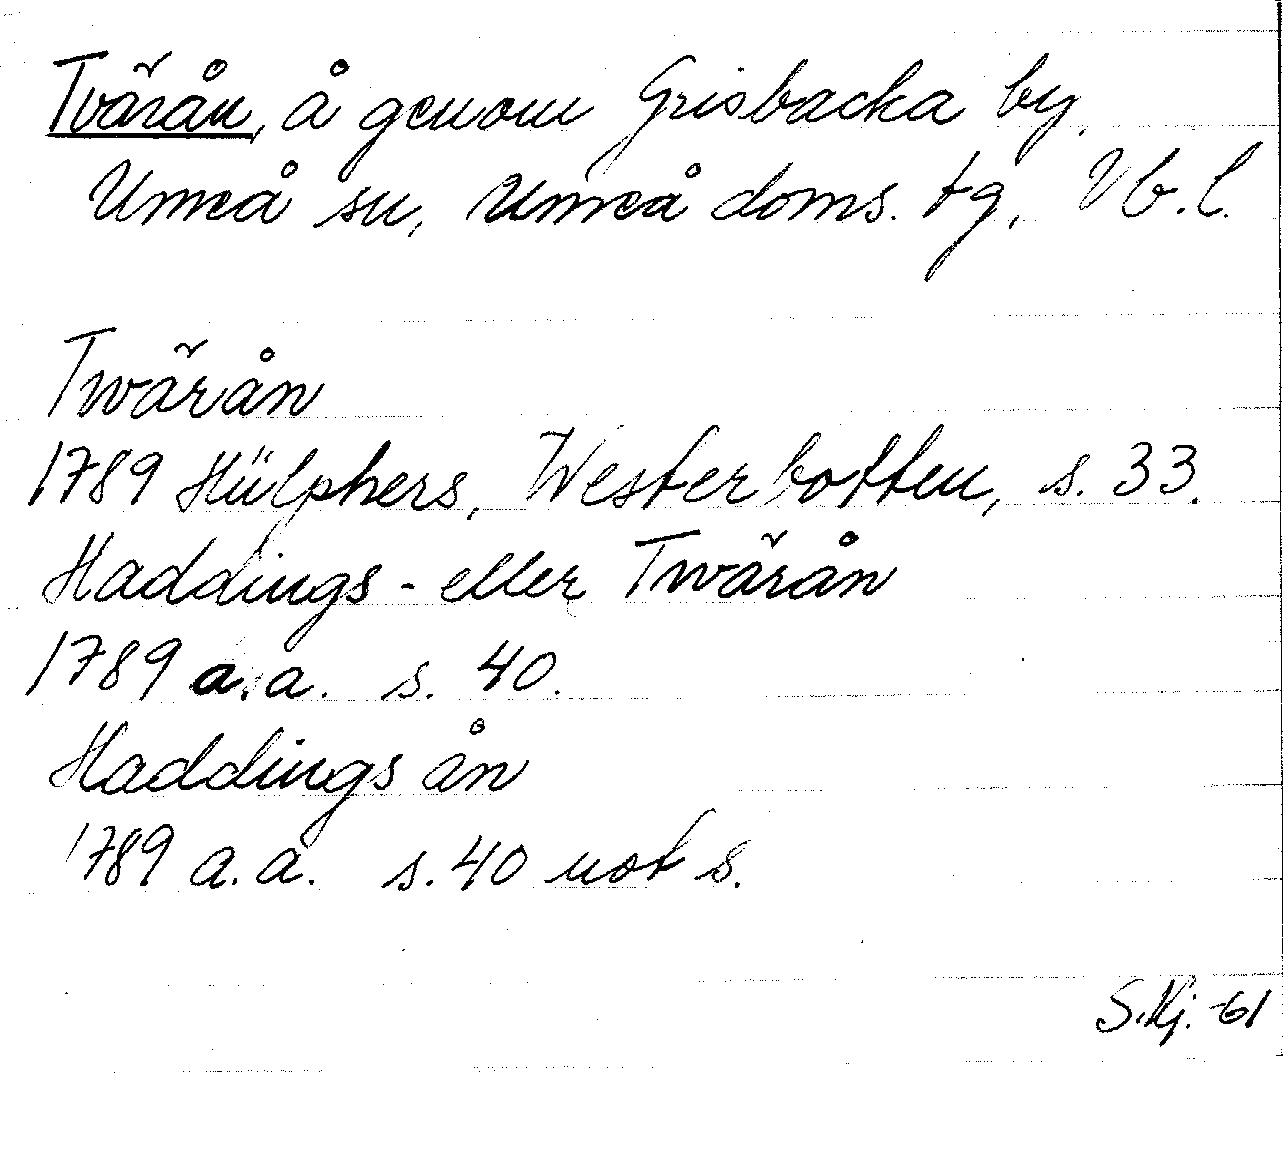 Tvärån, å genom Grisbacka by.
Umeå sn, Umeå doms. tg, Vb.l.
Twärån
1789 Hülphers, Westerbotten, s. 33.
Haddings- eller Twärån
1789 a.a. s. 40.
Haddings ån
1789 a.a. s. 40 not s.
S.Kj. -61